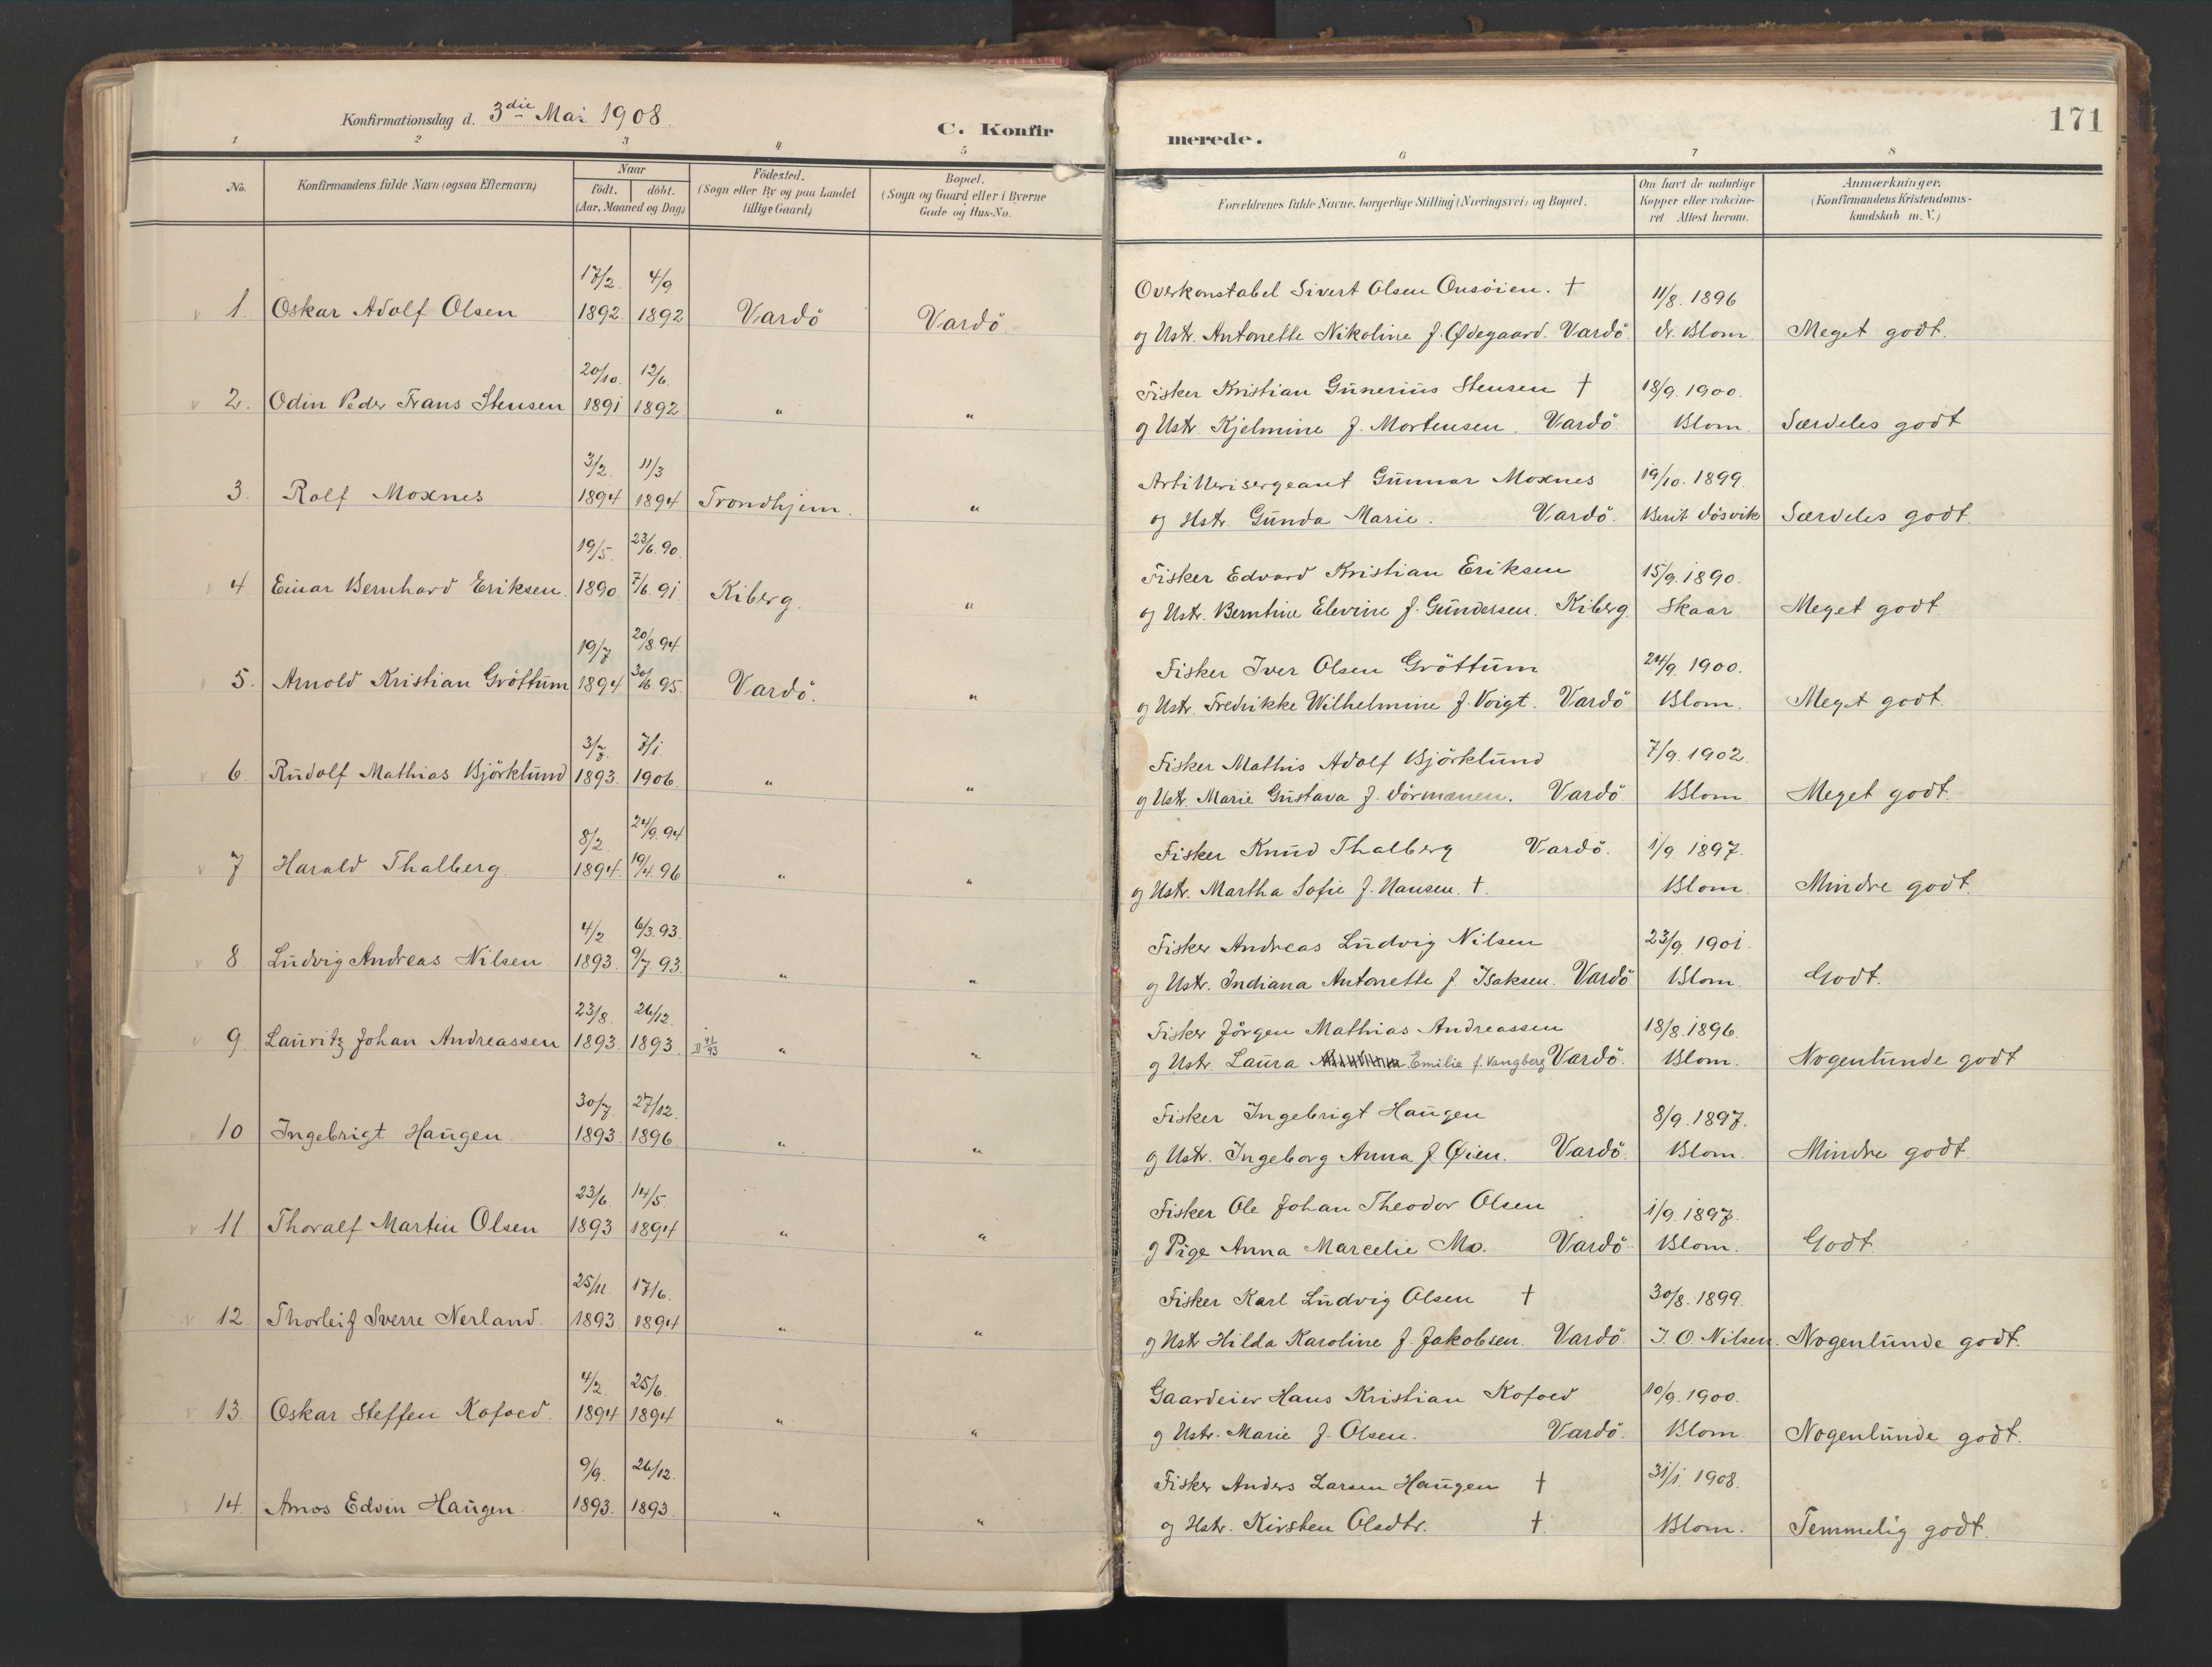 Konfirmationsdag d. 3die Mai 1908.
C. Konfirmerede.
171
1 2 3 4 5 6 7 8
No.
Konfirmandens fulde Navn (ogsaa Efternavn)
Naar
født. døbt.
(Aar, Maaned og Dag)
Födested.
(Sogn eller By og paa Landet
tillige Gaard)
Bopæl.
(Sogn og Gaard eller i Byerne
Gade og Hus-No.
Forældrenes fulde Navne, borgerlige Stilling (Næringsvei) og Bopæl.
Om havt de naturlige
Kopper eller vakcine-
ret Attest herom.
Anmærkninger.
(Konfirmandens Kristendoms-
kundskab m. V.)
17/2. 4/9 Overkonstabel Sivert Olsen Onsöien. † 11/8. 1896
1. Oskar Adolf Olsen 1892. 1892 Vardö Vardö og Hstr. Antonette Nikoline f. Ødegaard. Vardö. dr. Blom Meget godt.
20/10. 12/6. Fisker Kristian Gunerius Stensen † 18/9. 1900.
2. Odin Peder Frans Stensen 1891 1892 " " og Hstr. Kjelmine f. Mortensen. Vardö. Blom. Særdeles godt
3/2. 11/3 Artillerisergeant Gunnar Moxnes 19/10. 1899.
3. Rolf Moxnes 1894 1894 Trondhjem. " og Hstr. Gunda Marie. Vardö. Berit Dösvik Særdeles godt
19/5. 23/6. 90. Fisker Edvard Kristian Eriksen 15/9. 1890.
4. Einar Bernhard Eriksen. 1890 7/6. 91. Kiberg. " og Hstr. Berntine Elevine f. Gundersen. Kiberg. Skaar Meget godt.
19/7 20/8. 94 Fisker Iver Olsen Gröttum 24/9. 1900.
5. Arnold Kristian Gröttum 1894 30/6. 95. Vardö. " og Hstr. Fredrikke Wilhelmine f. Voigt. Vardö Blom. Meget godt.
3/7. 7/1 Fisker Mathis Adolf Björklund 7/9. 1902.
6 Rudolf Mathias Björklund 1893. 1906 " " og Hstr. Marie Gustava f. Dörmænen. Vardö Blom Meget godt.
8/2. 24/9. 94 Fisker Knud Thalberg Vardö. 1/9. 1897.
7 Harald Thalberg. 1894. 19/4. 96 " " og Hstr. Martha Sofie f. Hansen. †. Blom. Mindre godt.
4/2 6/3. 93. Fisker Andreas Ludvig Nilsen 23/9. 1901.
8 Ludvig Andreas Nilsen 1893. 9/7. 93. " " og Hstr. Indiana Antonette f. Isaksen. Vardö Blom. Godt.
23/8. 26/12. Fisker Jörgen Mathias Andreassen 18/8. 1896.
9 Lauritz Johan Andreassen 1893. 1893. " " og Hstr. Laura Emilie f. Vangberg Vardö. Blom. Nogenlunde godt
30/7. 27/12. Fisker Ingebrigt Haugen 8/9. 1897.
10 Ingebrigt Haugen. 1893. 1896. " " og Hstr. Ingeborg Anna f. Øien. Vardö. Blom. Mindre godt.
23/6 14/5. Fisker Ole Johan Theodor Olsen 1/9. 1897.
11 Thoralf Martin Olsen 1893 1894 " " og Pige Anna Marcelie Mo. Vardö. Blom. Godt.
25/11. 17/6. Fisker Karl Ludvig Olsen † 30/8. 1899.
12. Thorleif Sverre Nerland. 1893 1894 " " og Hstr Hilda Karoline f. Jakobsen. Vardö. J. O. Nilsen. Nogenlunde godt.
4/2. 25/6. Gaardeier Hans Kristian Kofoed 10/9. 1900.
13. Oskar Steffen Kofoed. 1894 1894 " " og Hstr. Marie f. Olsen. Vardö. Blom. Nogenlunde godt.
9/9. 26/12. Fisker Anders Larsen Haugen † 31/1. 1908.
14. Amos Edvin Haugen. 1893. 1893. " " og Hstr. Kirsten Olsdtr. † Blom. Temmelig godt.